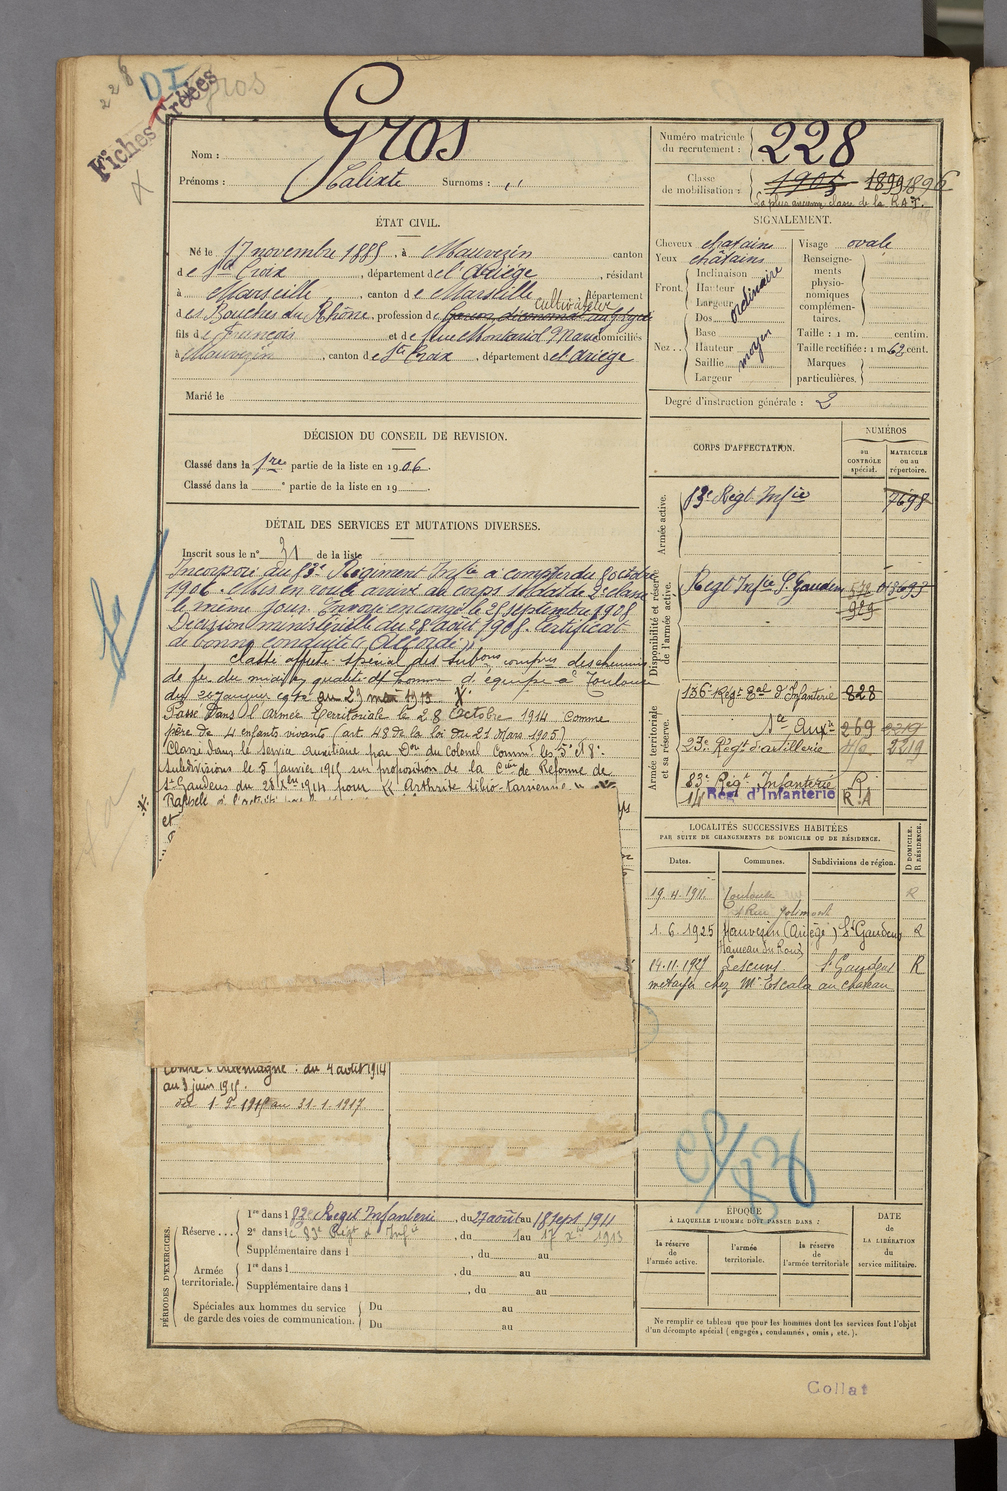 228
D.I.
Gros
Fiches Créées
Nom : Gros
Prénoms : Calixte Surnoms : ,,
Numéro matricule du recrutement : 228
Classe de mobilisation : 1905 1899 1896
La plus ancienne classe de la R.A.T.
ÉTAT CIVIL.
Né le 17 novembre 1885, à Mauvezin canton
de Ste Croix, département de l'Ariège, résidant
à Marseille, canton de Marseille, département
cultivateur
des Bouches du Rhône, profession de
fils de François et de Marie domiciliés
à Mauvezin, canton de Ste Croix, département de l'Ariège
Marié le
SIGNALEMENT.
Cheveux châtains
Yeux châtains
Front. Inclinaison
Hauteur
Largeur
ordinaire
Nez .. Dos
Base
Hauteur
Saillie
Largeur
moyen
Visage ovale
Renseignements physionomiques complémentaires.
Taille : 1 m. centim.
Taille rectifiée : 1 m. 62 cent.
Marques particulières.
Degré d'instruction générale : 2
DÉCISION DU CONSEIL DE REVISION.
Classé dans la 1re partie de la liste en 1906.
Classé dans la e partie de la liste en 19
DÉTAIL DES SERVICES ET MUTATIONS DIVERSES.
Inscrit sous le n° 31 de la liste
Incorporé au 83e Régiment Infie à compter du 8 octobre
1906. Mis en route arrivé au corps soldat de 2e classe
le même jour. Envoyé en congé le 25 septembre 1908
Décision ministérielle du 28 août 1908. Certificat
de bonne conduite « Accordé »
Classé affecté spécial des subons compris des chemins
de fer du midi en qualité d'homme d'équipe à Toulouse
du 20 janvier 1912 au 29 mai 1913
Passé dans l'Armée Territoriale le 28 Octobre 1914 Comme
père de 4 enfants vivants (art. 48 de la loi du 21 Mars 1905)
Classé dans le service Auxiliaire par Don du Colonel Commt les 5e et 8e
Subdivisions le 5 Janvier 1915 sur proposition de la Con de Réforme de
St Gaudens du 28 Xbre 1914 pour
Rappelé à l'activité
et
contre l'Allemagne : du 4 août 1914
au 3 juin 1915.
du 1-9-1915 au 31-1-1917.
CORPS D'AFFECTATION.
NUMÉROS
au CONTRÔLE spécial.
MATRICULE ou au répertoire.
Armée active.
83e Régt Infie 7698
Disponibilité et réserve de l'armée active.
Régt Infie St Gaudens
929
Armée territoriale et sa réserve.
136e Régt Eal d'Infanterie 828
Sce Auxre 269 2219
23e Régt d'artillerie 2219
83e Régt Infanterie R
14 Rég. d'Infanterie R.A
LOCALITÉS SUCCESSIVES HABITÉES
PAR SUITE DE CHANGEMENTS DE DOMICILE OU DE RÉSIDENCE.
Dates. Communes. Subdivisions de région. D DOMICILE. R RÉSIDENCE.
19.4.1911. Toulouse R
Rue Jolimont
1.6.1925 Mauvezin (Ariège) St Gaudens R
Hameau
14-11-1927 Lescure St Gaudens R
métayer chez Mr Escala au château
PÉRIODES D'EXERCICES.
Réserve ... 1re dans le 82e Régt Infanterie, du 27 août au 18 Sept 1911
2e dans le 83e Régt d'Infie, du 1 au 17 Xbre 1913
Supplémentaire dans l , du au
Armée territoriale. 1re dans l , du au
Supplémentaire dans l , du au
Spéciales aux hommes du service de garde des voies de communication. Du au
Du au
ÉPOQUE
À LAQUELLE L'HOMME DOIT PASSER DANS :
la réserve de l'armée active.
l'armée territoriale.
la réserve de l'armée territoriale
DATE DE LA LIBÉRATION du service militaire.
Ne remplir ce tableau que pour les hommes dont les services font l'objet
d'un décompte spécial (engagés, condamnés, omis, etc.).
Collat